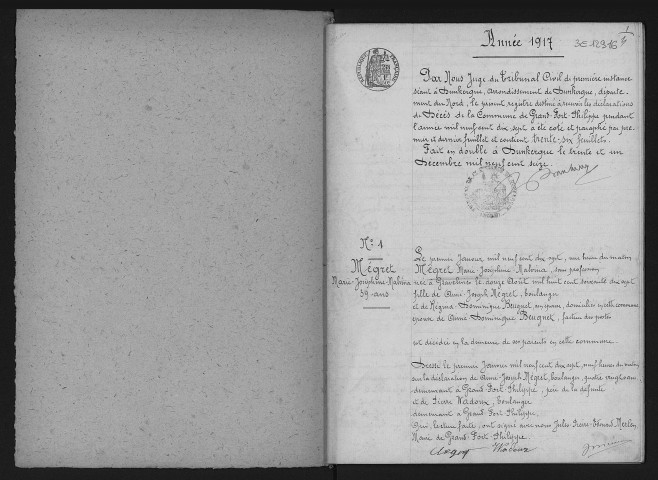 Année 1917
3E12916
Par Nous Juge du Tribunal Civil de première instance
séant à Dunkerque, arrondissement de Dunkerque, départe-
ment du Nord, le présent registre destiné à recevoir les déclarations
de Décès de la Commune de Grand-Fort-Philippe pendant
l'année mil neuf cent dix sept a été coté et paraphé par pre-
mier et dernier feuillet et contient trente-six feuillets.
Fait en double à Dunkerque le trente et un
Décembre mil neuf cent seize.
N° 1
Mégret
Marie-Joséphine-Malvina
39 ans
Le premier Janvier mil neuf cent dix sept, une heure du matin
Mégret Marie Joséphine Malvina, sans profession
née à Gravelines le douze Août mil huit cent soixante dix sept
fille de Aimé-Joseph Mégret, boulanger
et de Régina-Dominique Beugnet, domiciliés en cette commune
épouse de Aimé Dominique Beugnet, facteur des postes
est décédée en la demeure de ses parents en cette commune.
Dressé le premier Janvier mil neuf cent dix sept, neuf heures du matin
sur la déclaration de Aimé-Joseph Mégret, boulanger,
demeurant à Grand-Fort-Philippe, père de la défunte
et de Pierre Wadoux, boulanger
demeurant à Grand-Fort-Philippe,
Qui, lecture faite, ont signé avec nous Jules-Pierre
Maire de Grand-Fort-Philippe.